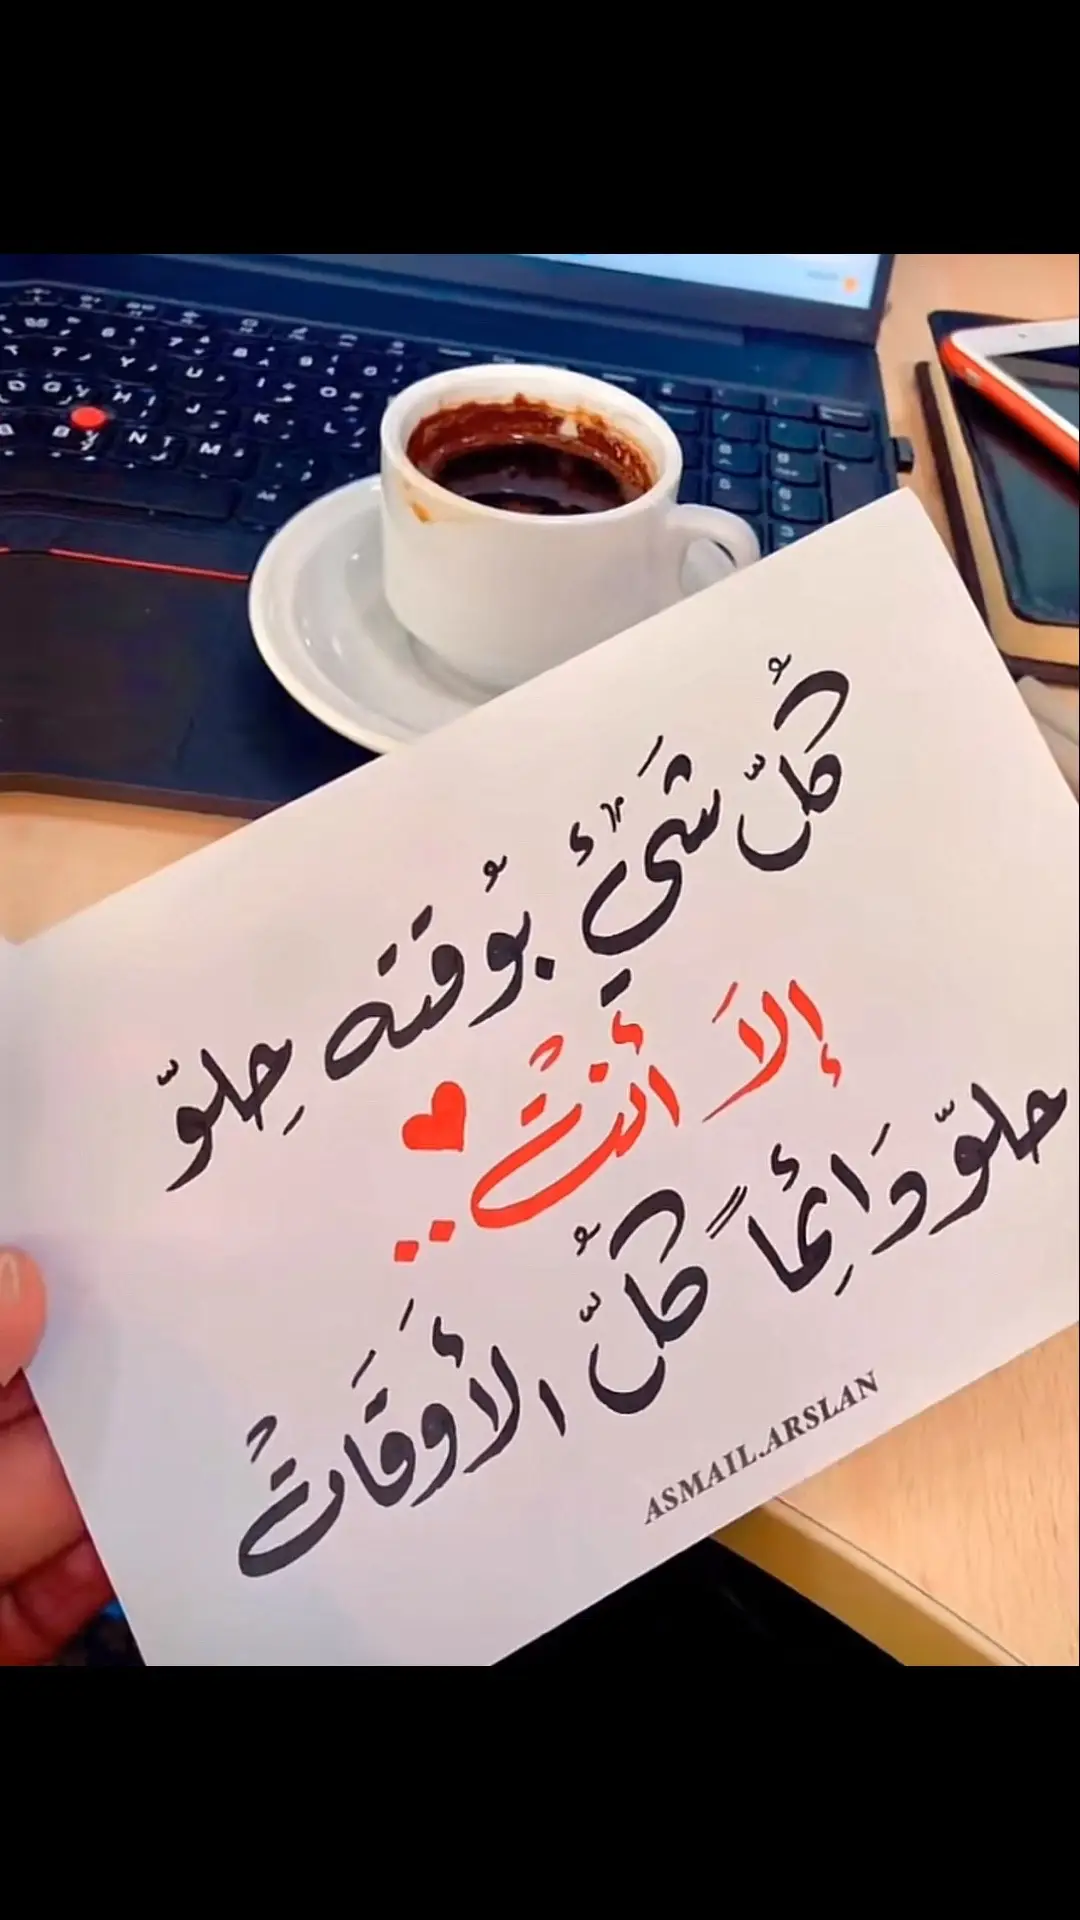 كُلّ شَيْئٍ بوُقته حِلوّ
إلاَ أنتْ..
حلوّ دَائِماً كُلّ الأَوقَاتْ
ASMAIL.ARSLAN